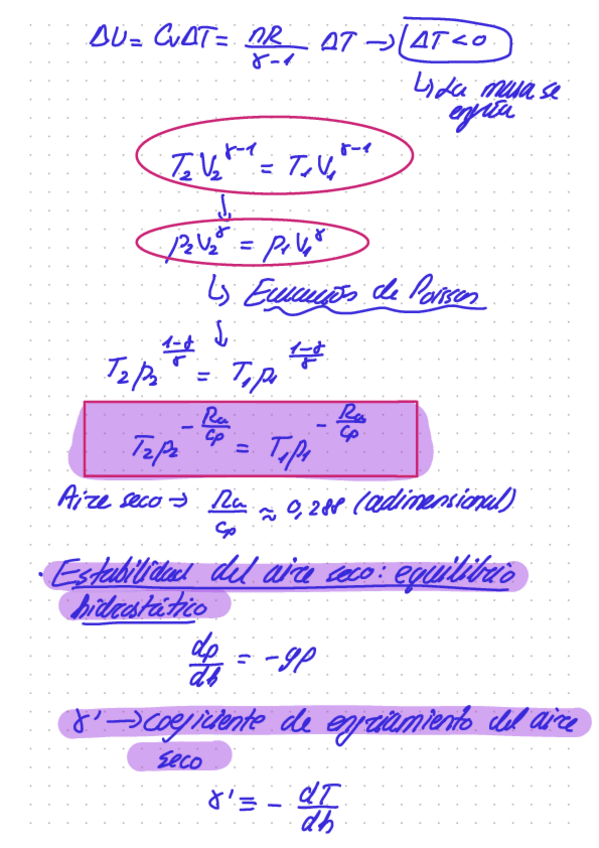 ΔU = CvΔT = nR/(γ-1) ΔT → ΔT < 0
↳ La masa se
enfría
T₂V₂^(γ-1) = T₁V₁^(γ-1)
↓
p₂V₂^γ = p₁V₁^γ
↳ Ecuaciones de Poisson
↓
T₂p₂^((1-γ)/γ) = T₁p₁^((1-γ)/γ)
T₂p₂^(-Ra/cp) = T₁p₁^(-Ra/cp)
Aire seco → Ra/cp ≈ 0,288 (adimensional)
· Estabilidad del aire seco: equilibrio
hidrostático
dp/dh = -gρ
γ' → coeficiente de enfriamiento del aire
seco
γ' ≡ - dT/dh